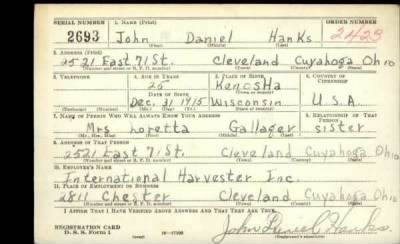 SERIAL NUMBER 1. NAME (Print) ORDER NUMBER
2693 John Daniel Hanks 2423
(First) (Middle) (Last)
2. ADDRESS (Print)
2521 East 71 St. Cleveland Cuyahoga Ohio
(Number and street or R. F. D. number) (Town) (County) (State)
3. TELEPHONE 4. AGE IN YEARS 5. PLACE OF BIRTH 6. COUNTRY OF CITIZENSHIP
25 KenosHa
DATE OF BIRTH (Town or county)
Dec. 31 1915 Wisconsin U.S.A.
(Exchange) (Number) (Mo.) (Day) (Yr.) (State or country)
7. NAME OF PERSON WHO WILL ALWAYS KNOW YOUR ADDRESS 8. RELATIONSHIP OF THAT PERSON
Mrs Loretta Gallager sister
(Mr., Mrs., Miss) (First) (Middle) (Last)
9. ADDRESS OF THAT PERSON
2521 East 71 St. Cleveland Cuyahoga Ohio
(Number and street or R. F. D. number) (Town) (County) (State)
10. EMPLOYER'S NAME
International Harvester Inc.
11. PLACE OF EMPLOYMENT OR BUSINESS
2811 Chester Cleveland Cuyahoga Ohio
(Number and street or R. F. D. number) (Town) (County) (State)
I AFFIRM THAT I HAVE VERIFIED ABOVE ANSWERS AND THAT THEY ARE TRUE.
REGISTRATION CARD
D. S. S. FORM 1 16—17105 John Daniel Hanks
(Registrant's signature)